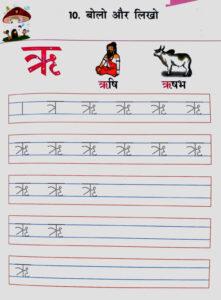 10. बोलो और लिखो
ऋ
ऋषि ऋषभ
। त्र ऋ ऋ ऋ ऋ
ऋ ऋ ऋ ऋ ऋ ऋ
ऋ ऋ ऋ
ऋ ऋ
ऋ